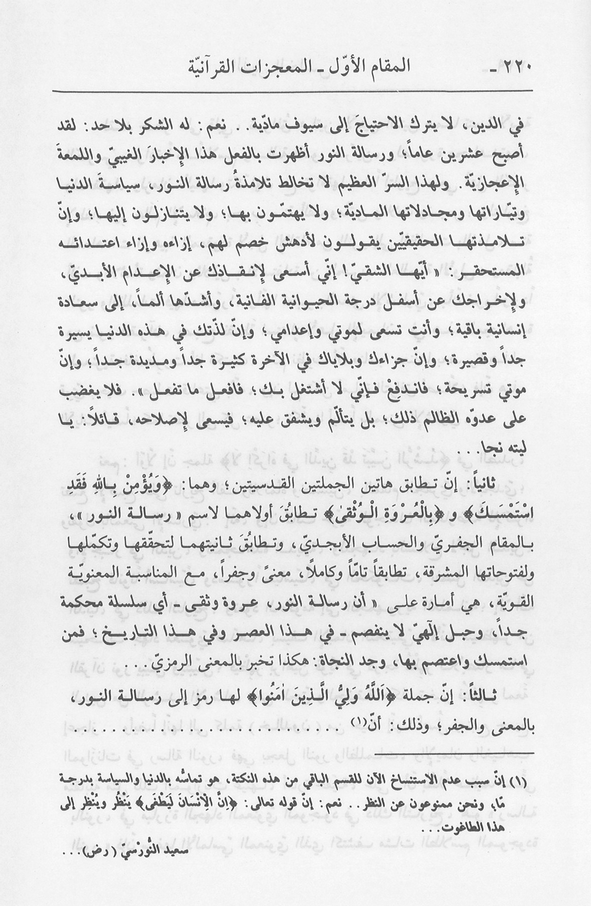 ٢٢٠ - المقام الأوّل - المعجزات القرآنيّة
في الدين، لا يترك الاحتياجَ إلى سيوف مادّية.. نعم: له الشكر بلا حد: لقد
أصبح عشرين عاماً؛ ورسالة النور أظهرت بالفعل هذا الإخبارَ الغيبيّ واللمعةَ
الإعجازيّة. ولهذا السرّ العظيم لا تخالط تلامذةُ رسالة النور، سياسةَ الدنيا
وتيّاراتها ومجادلاتها الماديّة؛ ولا يهتمّون بها؛ ولا يتنازلون إليها؛ وإنّ
تلامذتها الحقيقيّين يقولون لأدهش خصم لهم، إزاءه وإزاء اعتدائه
المستحقر: « أيّها الشقيّ! إنّي أسعى لإنقاذك عن الإعدام الأبديّ،
ولإخراجك عن أسفل درجة الحيوانية الفانية، وأشدّها ألماً، إلى سعادة
إنسانية باقية؛ وأنت تسعى لموتي وإعدامي؛ وإنّ لذّتك في هذه الدنيا يسيرة
جداً وقصيرة؛ وإنّ جزاءك وبلاياك في الآخرة كثيرة جداً ومديدة جداً؛ وإنّ
موتي تسريحة؛ فاندفِعْ فإنّي لا أشتغل بك؛ فافعل ما تفعل ». فلا يغضب
على عدوّه الظالم ذلك؛ بل يتألّم ويشفق عليه؛ فيسعى لإصلاحه، قائلاً: يا
ليته نجا...
ثانياً: إنّ تطابق هاتين الجملتين القدسيتين؛ وهما: ﴿وَيُؤْمِنْ بِاللهِ فَقَدِ
اسْتَمْسَكَ﴾ و ﴿بِالْعُرْوَةِ الْوُثْقى﴾ تطابقَ أولاهما لاسم « رسالة النور »،
بالمقام الجفريّ والحساب الأبجديّ، وتطابقَ ثانيتهما لتحقّقها وتكمّلها
ولفتوحاتها المشرقة، تطابقاً تامّاً وكاملاً، معنىً وجفراً، مع المناسبة المعنويّة
القويّة، هي أمارة على « أن رسالة النور، عروة وثقى ـ أي سلسلة محكمة
جداً، وحبل إلٓهيّ لا ينفصم ـ في هذا العصر وفي هذا التاريخ؛ فمن
استمسك واعتصم بها، وجد النجاة: هكذا تخبر بالمعنى الرمزيّ...
ثالثاً: إنّ جملة ﴿اَللهُ وَلِيُّ الَّذِينَ اٰمَنُوا﴾ لها رمز إلى رسالة النور،
بالمعنى والجفر؛ وذلك: أنّ(١) ............................
(١) إنّ سبب عدم الاستنساخ الآن للقسم الباقي من هذه النكتة، هو تماسُّه بالدنيا والسياسة بدرجة
مّا؛ ونحن ممنوعون عن النظر.. نعم: إنّ قوله تعالى: ﴿اِنَّ الْاِنْسَانَ لَيَطْغٰى﴾ يَنْظُر ويُنْظِر إلى
هذا الطاغوت...
سعيد النُّورْسيّ (رض)...